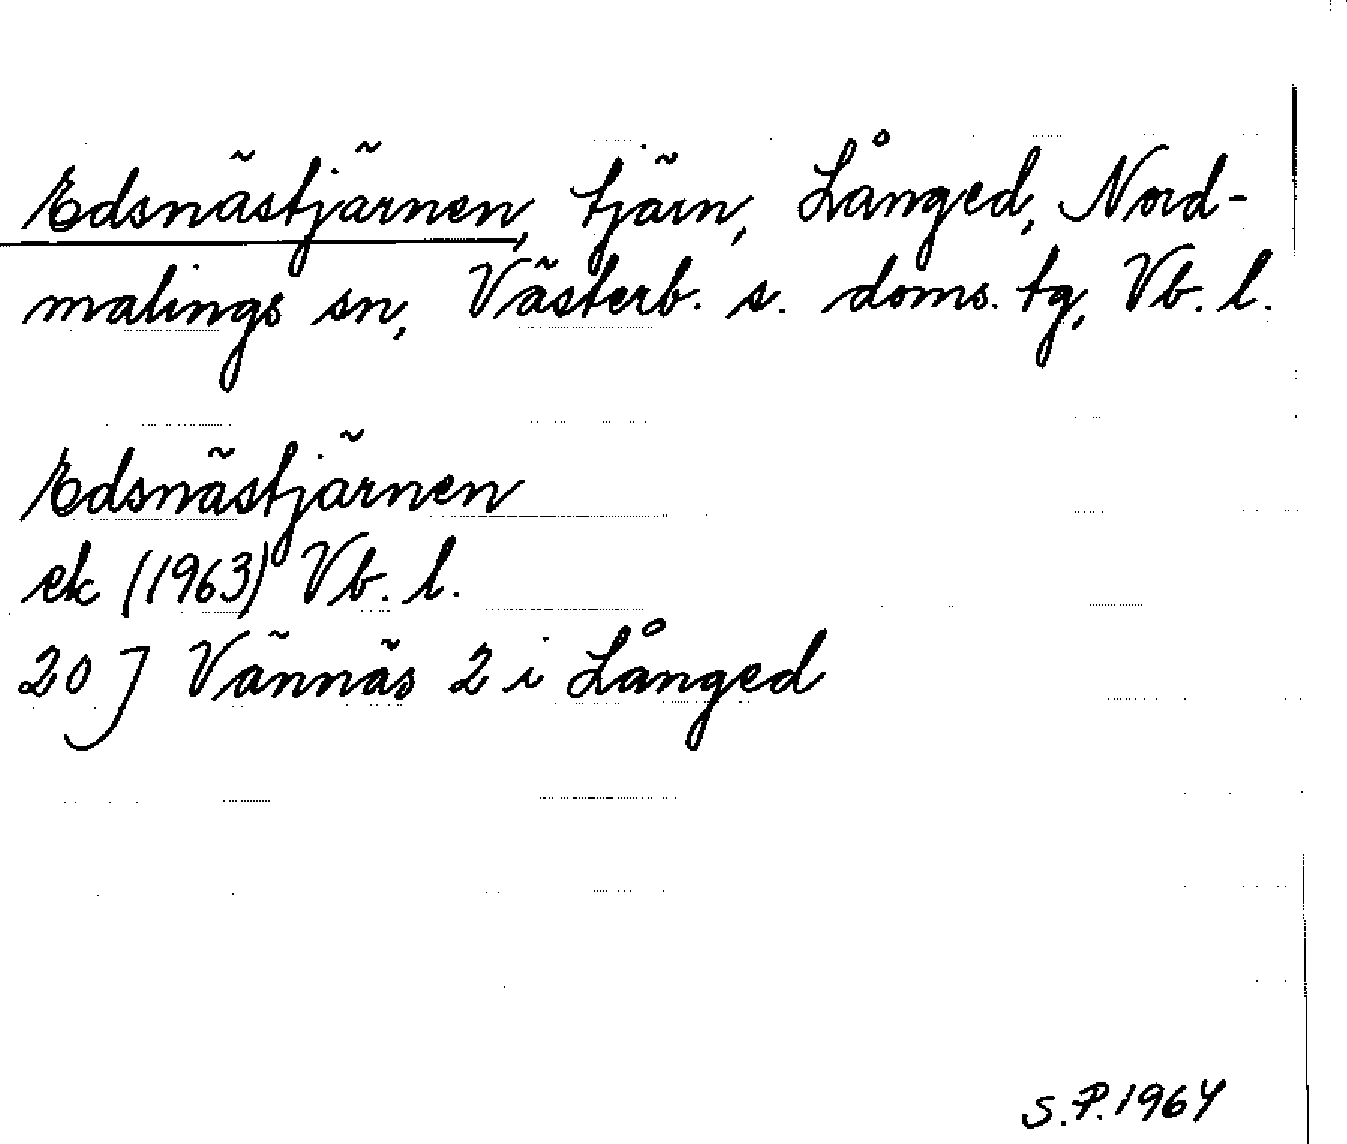 Edsnästjärnen, tjärn, Långed, Nord-
malings sn, Västerb. s. doms. tg, Vb. l.
Edsnästjärnen
ek (1963) Vb. l.
20 J Vännäs 2 i Långed
S.P. 1964